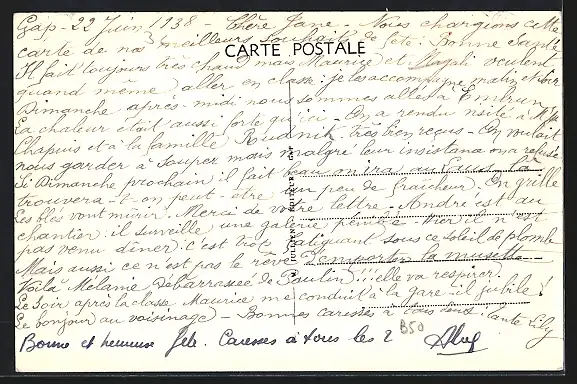 Gap - 22 Juin 1938 - Chère Jane - Nous chargions cette
carte de nos meilleurs souhaits de fête. Bonne santé
CARTE POSTALE
Il fait toujours très chaud mais Maurice et veulent
quand même aller en classe : je les accompagne matin et soir
Dimanche après-midi nous sommes allés à Embrun
La chaleur était aussi forte qu'ici - On a rendu visite à Mme
Chapuis et à la famille Rudnik. Très bien reçues - On voulait
nous garder à souper mais malgré leur insistance on a refusé
Si Dimanche prochain il fait beau on ira au
trouvera-t-on peut-être un peu de fraicheur. On grille
Les blés vont mûrir. Merci de votre lettre - André est au
chantier : il surveille une galerie Hier il n'est
pas venu dîner : c'est trop fatiguant sous ce soleil de plomb
Mais aussi ce n'est pas le rêve d'emporter la musette
Voilà Mélanie débarrassée de Paulin !!! elle va respirer.
Le soir après la classe Maurice me conduit à la gare - il jubile !
Le bonjour au voisinage - Bonnes caresses à tous deux. Tante Lily
B50
Bonne et heureuse fête. Caresses à tous les 2